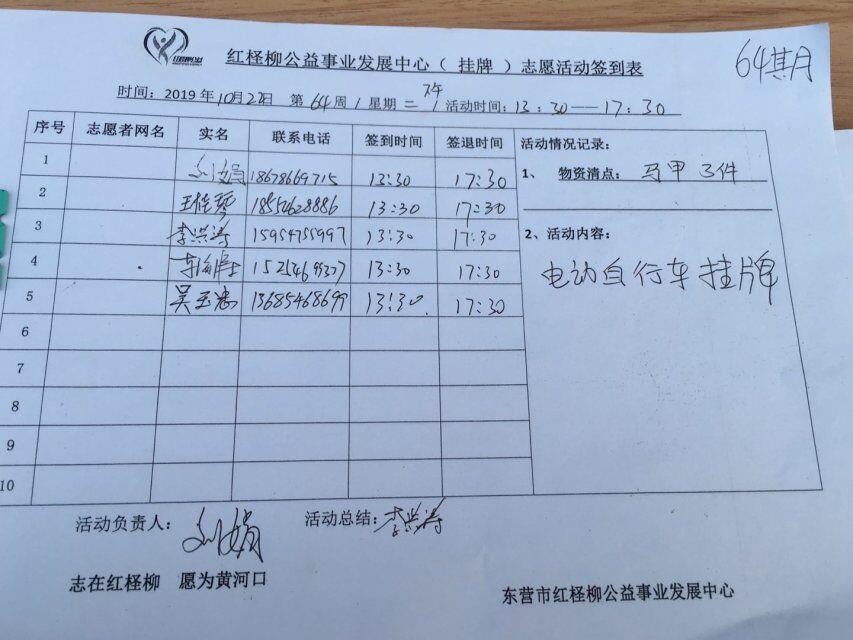 红柽柳公益事业发展中心（ 挂牌 ）志愿活动签到表
64期
时间：2019年10月22日 第64周/星期二 下午 活动时间：13：30—17：30
序号 志愿者网名 实名 联系电话 签到时间 签退时间
1 刘娟 18678669715 13:30 17:30
2 18550628886 13:30 17:30
3 李洪涛 15954755997 13:30 17:30
4 13:30 17:30
5 吴玉忠 13685468699 13:30 17:30
6
7
8
9
10
活动情况记录：
1、 物资清点： 马甲 3件
2、活动内容：
电动自行车挂牌
活动负责人：刘娟
活动总结：李洪涛
志在红柽柳 愿为黄河口
东营市红柽柳公益事业发展中心